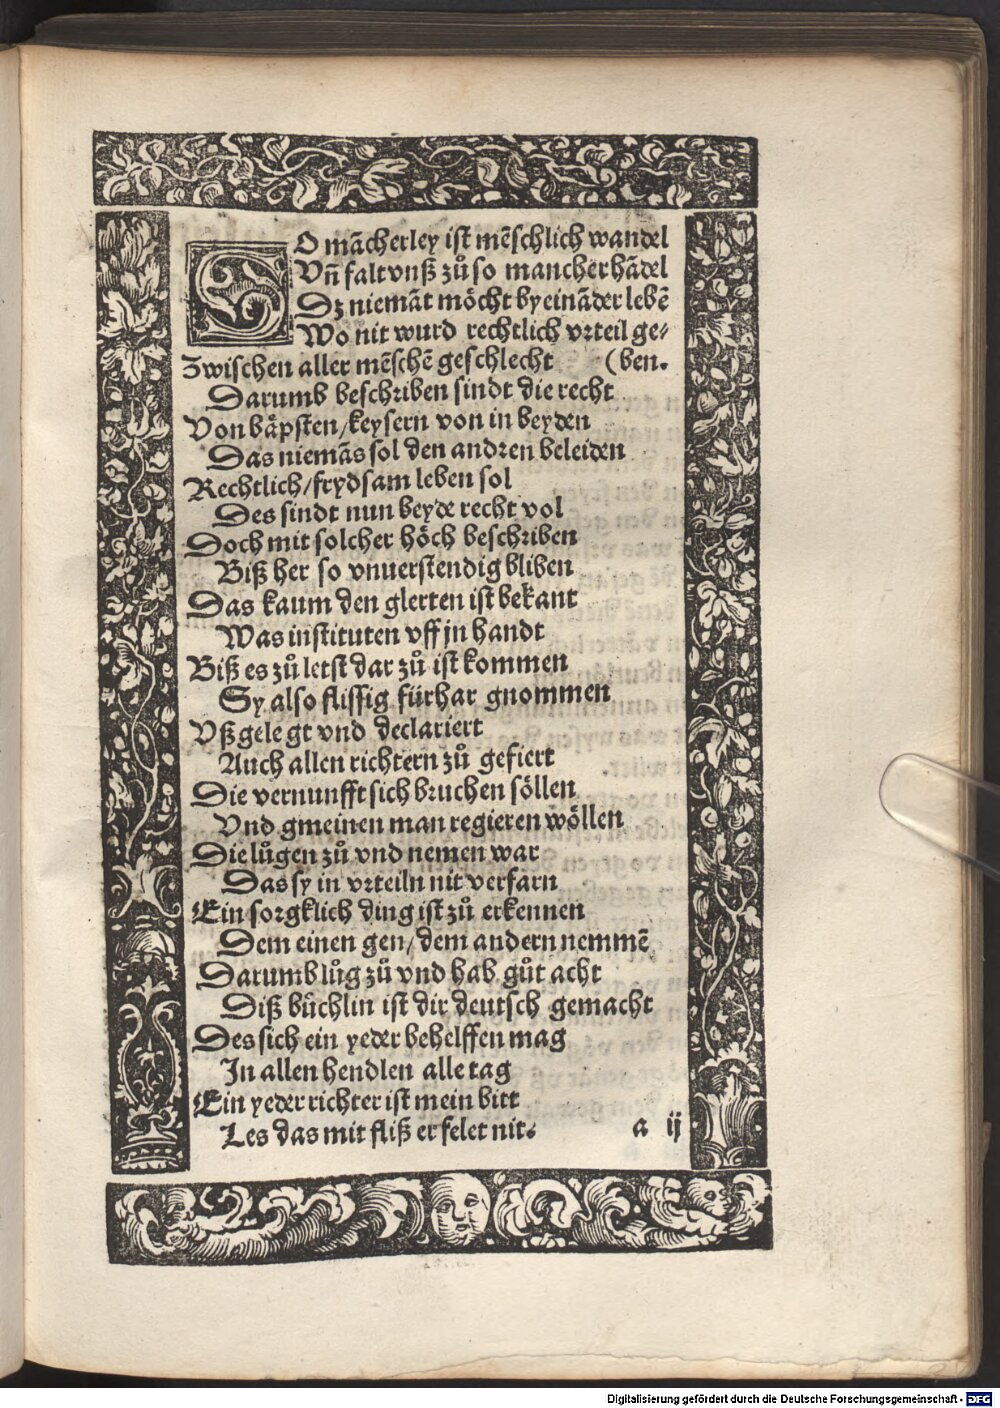 SO mācherley ist mēschlich wandel
Vñ falt vnß zů so mancher hādel
Dz niemāt möcht by eināder lebē
Wo nit wurd rechtlich vrteil ge-
Zwischen aller mēschē geschlecht (ben.
Darumb beschriben sindt die recht
Von bäpsten/keysern von in beyden
Das niemās sol den andren beleiden
Rechtlich/frydsam leben sol
Des sindt nun beyde recht vol
Doch mit solcher höch beschriben
Biß her so vnuerstendig bliben
Das kaum den glerten ist bekant
Was instituten vff jn handt
Biß es zů letst dar zů ist kommen
Sy also flissig fürhar gnommen
Vß gelegt vnd declariert
Auch allen richtern zů gefiert
Die vernunfft sich bruchen söllen
Vnd gmeinen man regieren wöllen
Die lůgen zů vnd nemen war
Das sy in vrteiln nit verfarn
Ein sorgklich ding ist zů erkennen
Dem einen gen/dem andern nemmē
Darumb lůg zů vnd hab gůt acht
Diß bůchlin ist dir deutsch gemacht
Des sich ein yeder behelffen mag
In allen hendlen alle tag
Ein yeder richter ist mein bitt
Les das mit fliß er felet nit. a ij
Digitalisierung gefördert durch die Deutsche Forschungsgemeinschaft - DFG